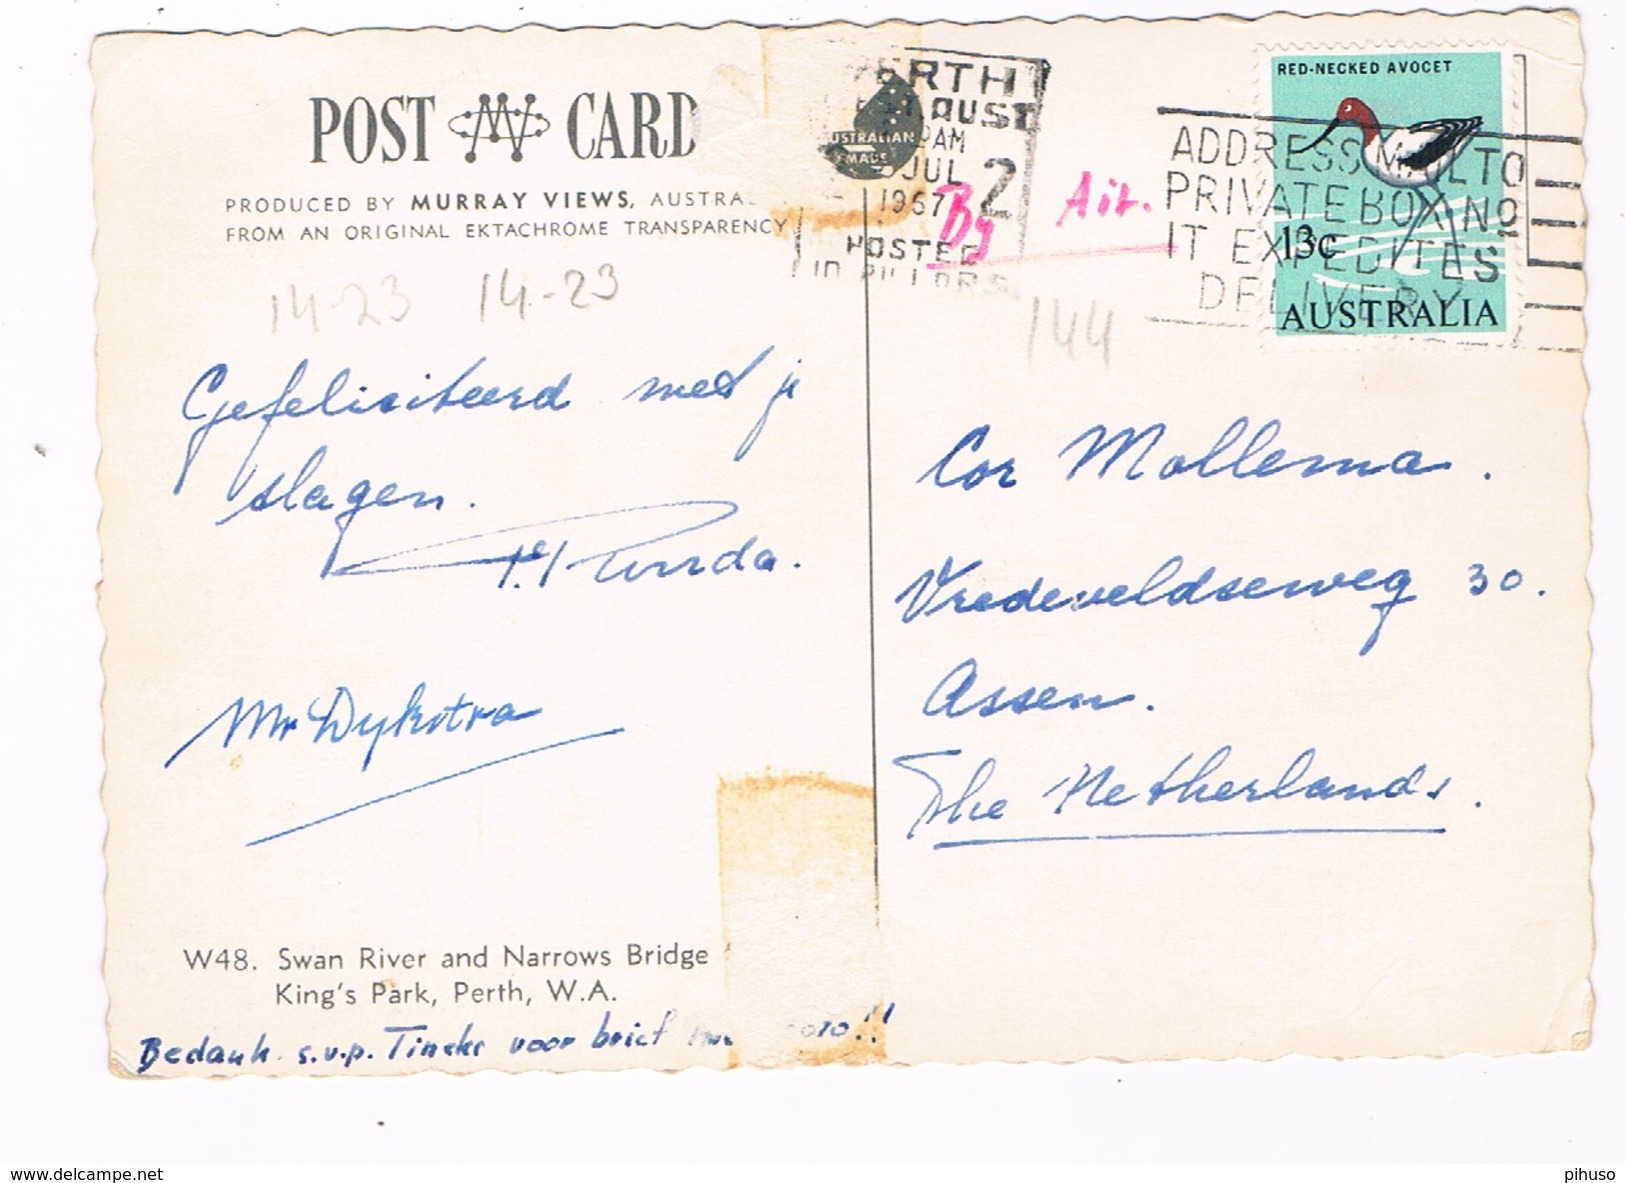 POST CARD
PRODUCED BY MURRAY VIEWS, AUSTRA
FROM AN ORIGINAL EKTACHROME TRANSPARENCY
AUSTRALIAN
MADE
PERTH
AUST
AM
JUL
1967
2
POSTED
IN PILLARS
By Air.
ADDRESS MAIL TO
PRIVATE BOX No
IT EXPEDITES
DELIVERY
RED-NECKED AVOCET
13c
AUSTRALIA
14-23 14.-23
144
Gefeliciteerd met je
slagen.
Mr Dykstra
Cor Mollema.
Vredeveldseweg 30.
Assen.
The Netherlands.
W48. Swan River and Narrows Bridge
King's Park, Perth, W.A.
Bedank s.v.p. Tineke voor brief !!
www.delcampe.net
pihuso